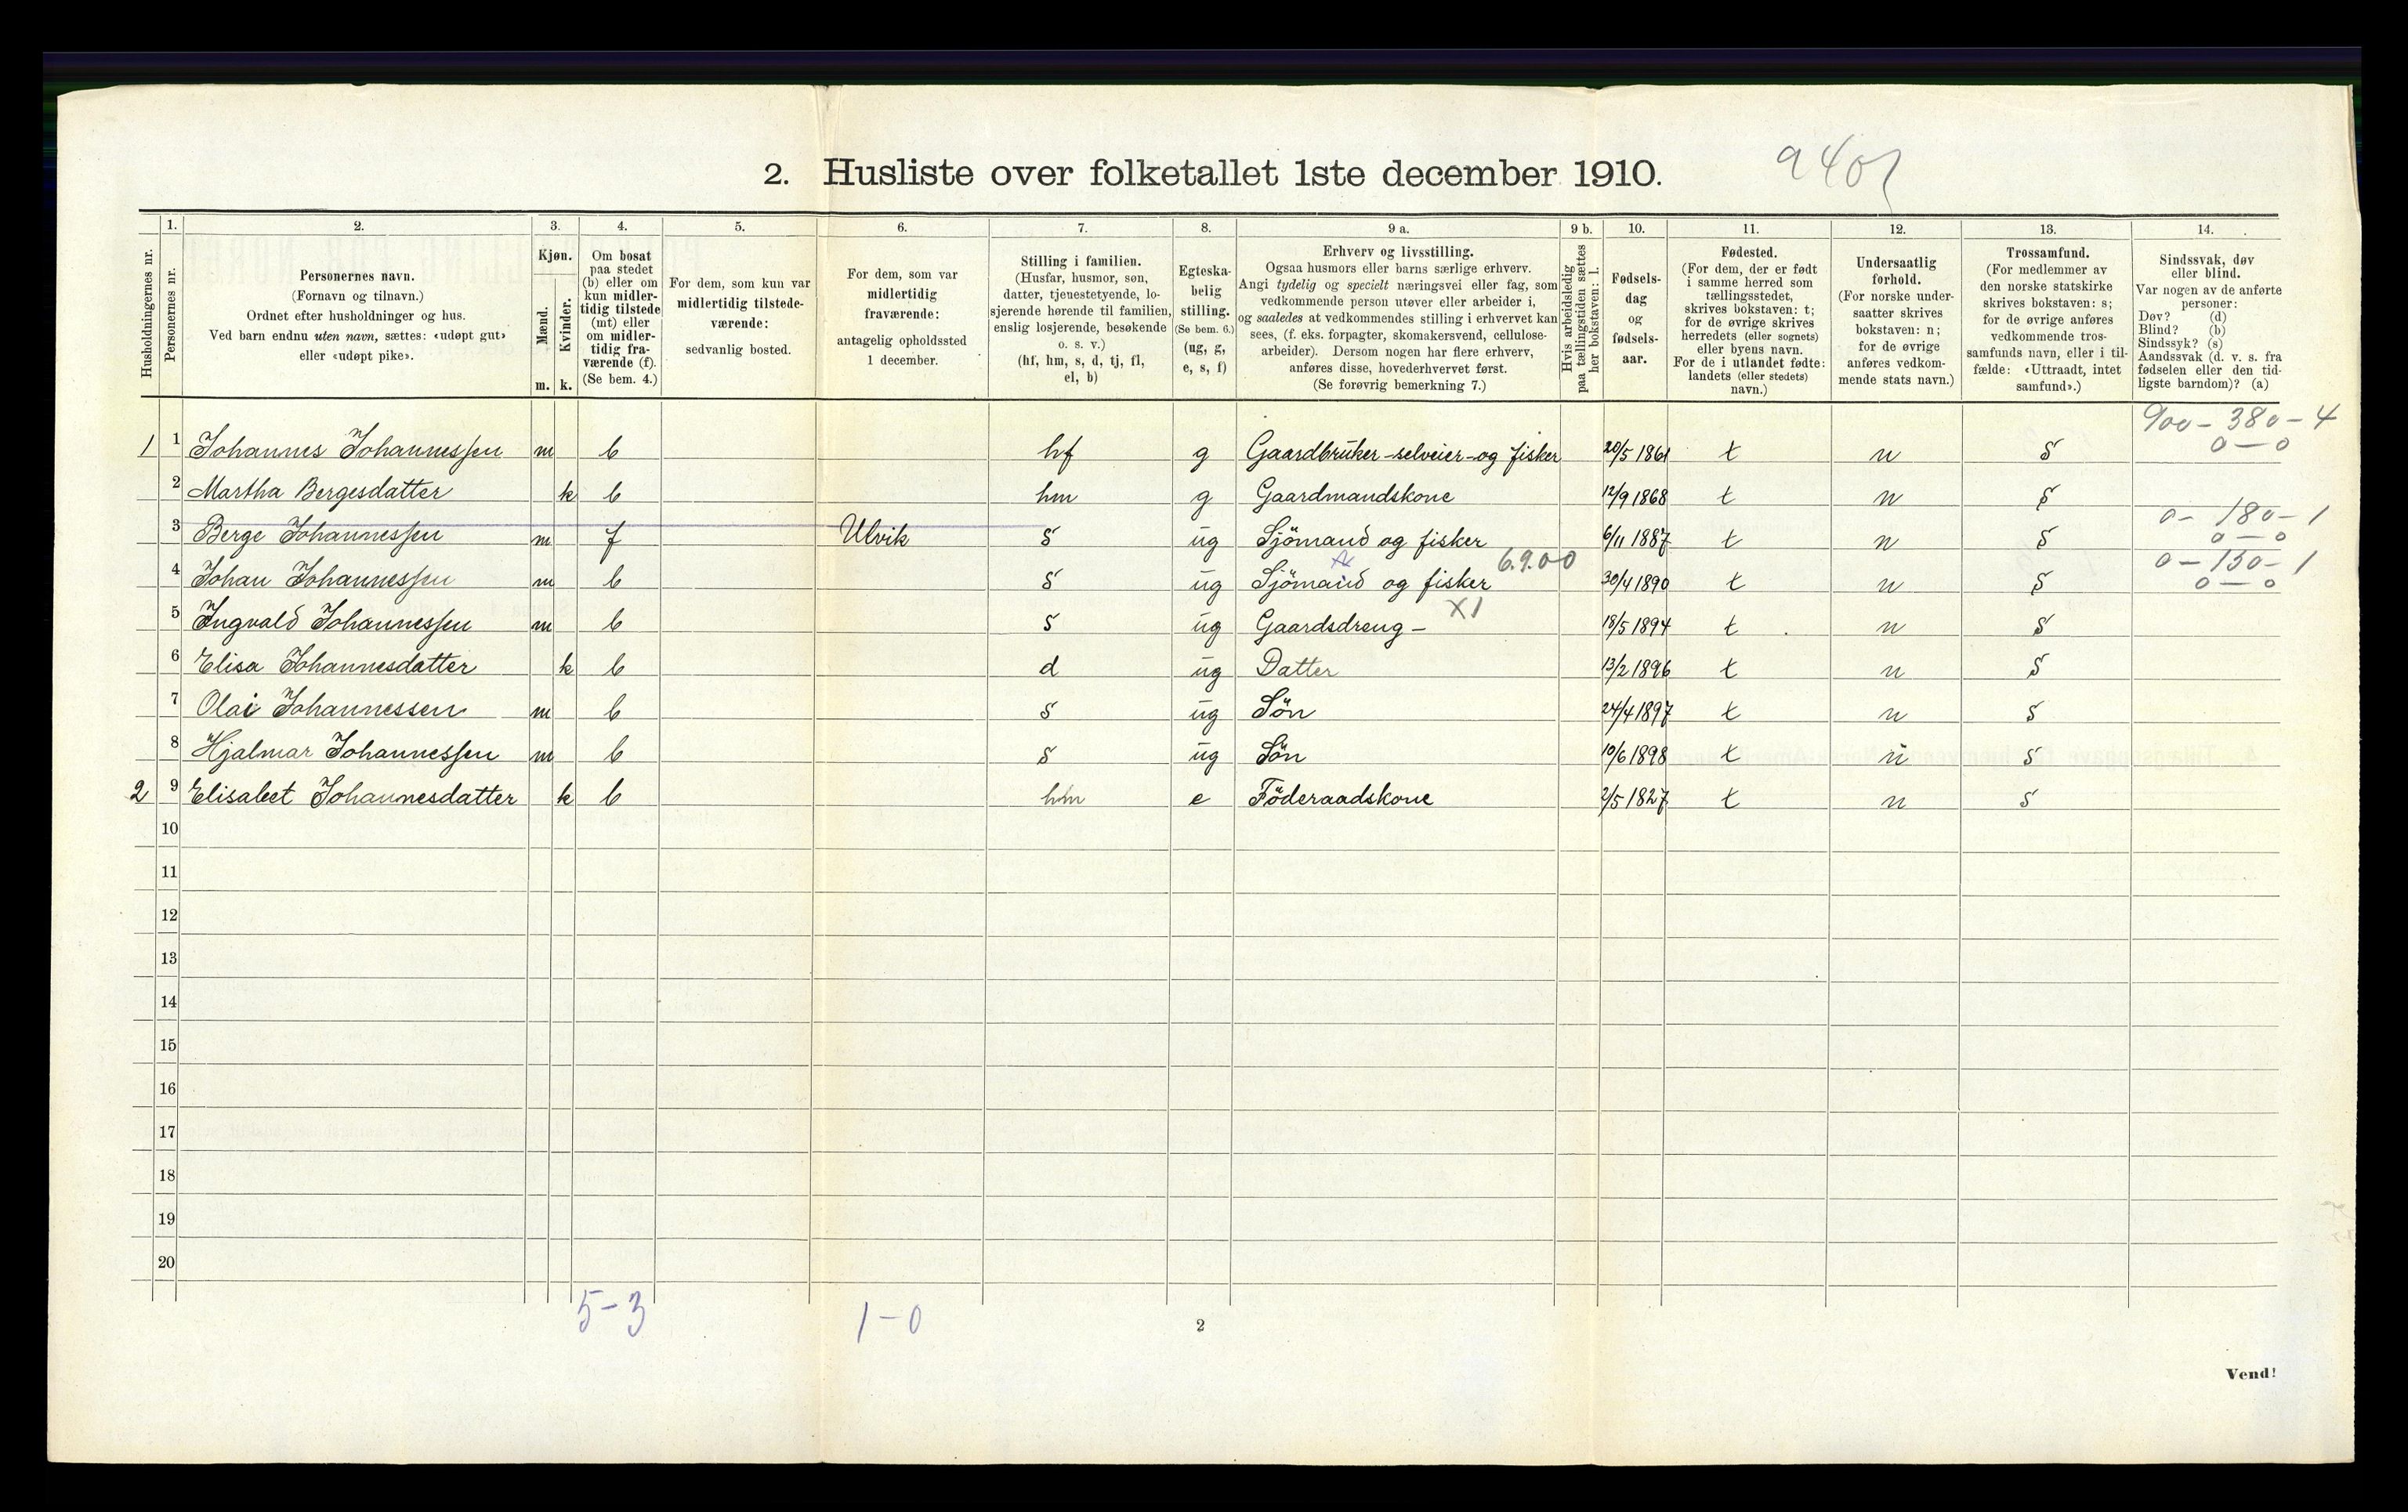 2. Husliste over folketallet 1ste december 1910.
Husholdningernes nr.
1. Personernes nr.
2. Personernes navn.
(Fornavn og tilnavn.)
Ordnet efter husholdninger og hus.
Ved barn endnu uten navn, sættes: «udøpt gut»
eller «udøpt pike».
3. Kjøn.
Mænd. m.
Kvinder. k.
4. Om bosat
paa stedet
(b) eller om
kun midler-
tidig tilstede
(mt) eller
om midler-
tidig fra-
værende (f).
(Se bem. 4.)
5. For dem, som kun var
midlertidig tilstede-
værende:
sedvanlig bosted.
6. For dem, som var
midlertidig
fraværende:
antagelig opholdssted
1 december.
7. Stilling i familien.
(Husfar, husmor, søn,
datter, tjenestetyende, lo-
sjerende hørende til familien,
enslig losjerende, besøkende
o. s. v.)
(hf, hm, s, d, tj, fl,
el, b)
8. Egteska-
belig
stilling.
(Se bem. 6.)
(ug, g,
e, s, f)
9 a. Erhverv og livsstilling.
Ogsaa husmors eller barns særlige erhverv.
Angi tydelig og specielt næringsvei eller fag, som
vedkommende person utøver eller arbeider i,
og saaledes at vedkommendes stilling i erhvervet kan
sees, (f. eks. forpagter, skomakersvend, cellulose-
arbeider). Dersom nogen har flere erhverv,
anføres disse, hovederhvervet først.
(Se forøvrig bemerkning 7.)
9 b. Hvis arbeidsledig
paa tællingstiden sættes
her bokstaven: l.
10. Fødsels-
dag
og
fødsels-
aar.
11. Fødested.
(For dem, der er født
i samme herred som
tællingsstedet,
skrives bokstaven: t;
for de øvrige skrives
herredets (eller sognets)
eller byens navn.
For de i utlandet fødte:
landets (eller stedets)
navn.)
12. Undersaatlig
forhold.
(For norske under-
saatter skrives
bokstaven: n;
for de øvrige
anføres vedkom-
mende stats navn.)
13. Trossamfund.
(For medlemmer av
den norske statskirke
skrives bokstaven: s;
for de øvrige anføres
vedkommende tros-
samfunds navn, eller i til-
fælde: «Uttraadt, intet
samfund».)
14. Sindssvak, døv
eller blind.
Var nogen av de anførte
personer:
Døv? (d)
Blind? (b)
Sindssyk? (s)
Aandssvak (d. v. s. fra
fødselen eller den tid-
ligste barndom)? (a)
900 - 380 - 4
1 1 Johannes Johannessen m b hf g Gaardbruker-selveier-og fisker 20/5 1861 t n S 0 - 0
2 Martha Bergesdatter k b hm g Gaardmandskone 12/9 1868 t n S
0 - 180 - 1
3 Berge Johannessen m f Ulvik S ug Sjömand og fisker 6/11 1887 t n S 0 - 0
6.9.00 0 - 130 - 1
4 Johan Johannessen m b S ug Sjömand og fisker 30/4 1890 t n S 0 - 0
X1
5 Ingvald Johannessen m b S ug Gaardsdreng - 18/5 1894 t n S
6 Elisa Johannesdatter k b d ug Datter 13/2 1896 t n S
7 Olai Johannessen m b S ug Sön 24/4 1897 t n S
8 Hjalmar Johannessen m b S ug Sön 10/6 1898 t n S
2 9 Elisabet Johannesdatter k b hm e Föderaadskone 2/5 1827 t n S
10
11
12
13
14
15
16
17
18
19
20
5-3 1-0
2
Vend!